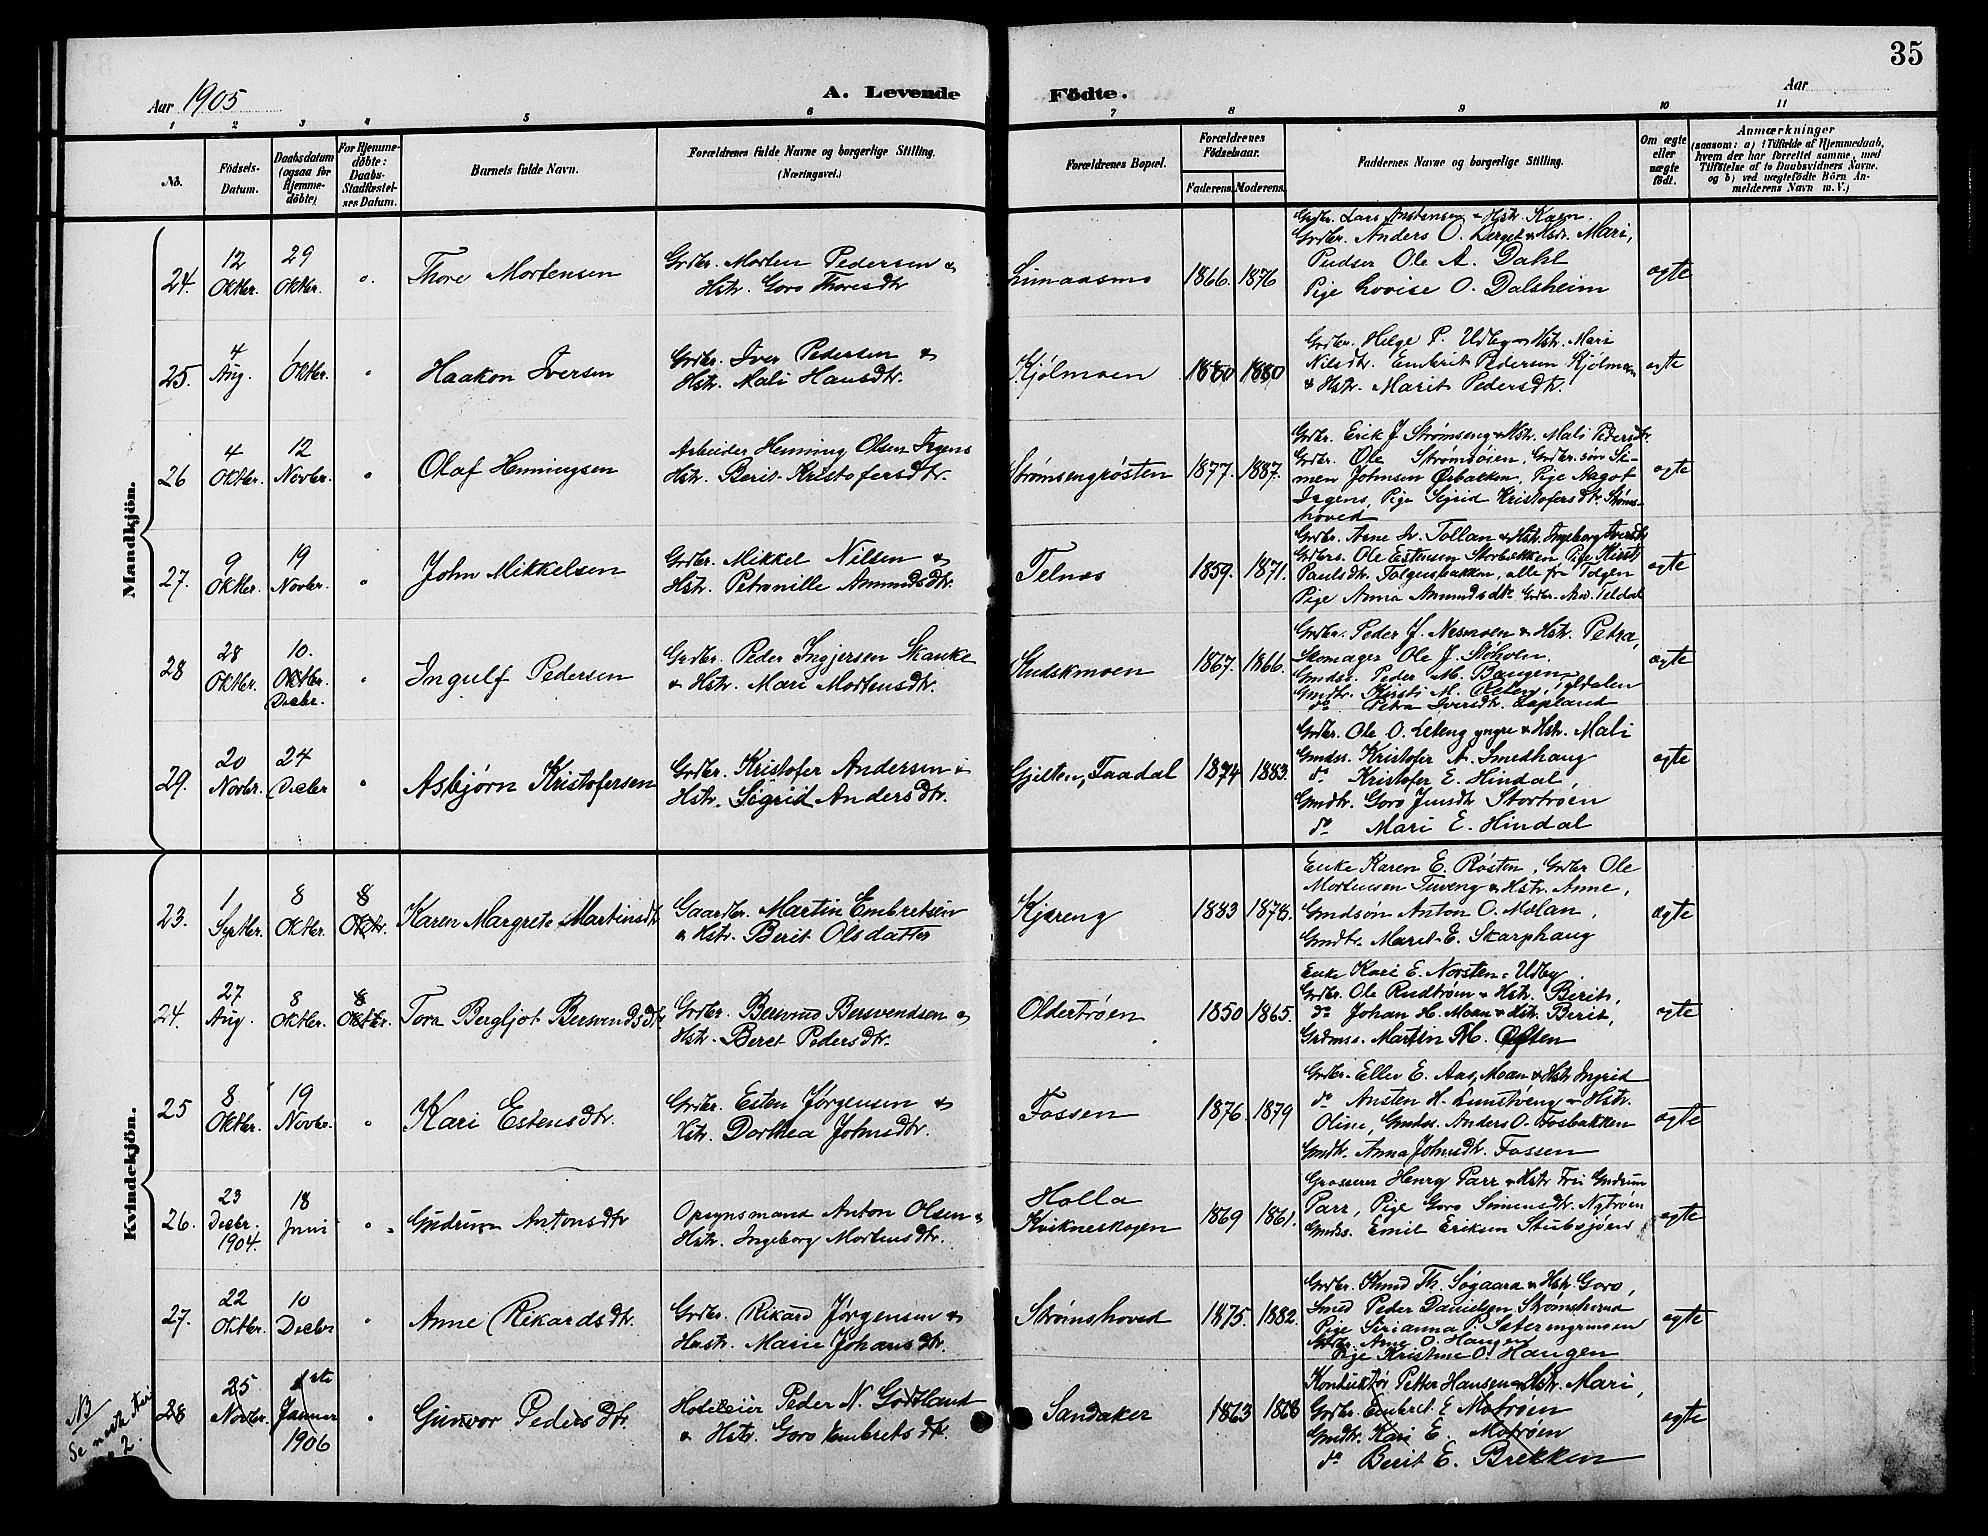 35
Aar 1905
A. Levende Fødte.
Aar
1 2 3 4 5 6 7 8 9 10 11
No.
Födsels-Datum.
Daabsdatum (ogsaa for Hjemme-döbte)
For Hjemme-döbte: Daabs-Stadfæstel-ses Datum.
Barnets fulde Navn.
Forældrenes fulde Navne og borgerlige Stilling. (Næringsvei.)
Forældrenes Bopæl.
Forældrenes Födselsaar.
Faderens. Moderens.
Faddernes Navne og borgerlige Stilling.
Om ægte eller uægte født.
Anmærkninger
(saasom: a) i Tilfælde af Hjemmedaab,
hvem der har forrettet samme, med
Tilföielse af to Daabsvidners Navne,
og b) ved uægtefödte Börn An-
melderens Navn m. V.)
Mandkjön.
24. 12 Oktbr. 29 Oktbr. Thore Mortensen
Grdbr. Morten Pedersen &
Hstr. Goro Thoresdtr
Limaasmo 1866. 1876
Grdbr. Lars Anstensen & Hstr. Karen.
Grdbr. Anders O. & Hstr. Mari,
Pudser Ole A. Dahl
Pige Lovise O. Dalsheim
ægte
25. 4 Aug. 1 Oktbr. Haakon Iversen
Grdbr. Iver Pedersen &
Hstr. Mali Hansdtr.
Kjølmoen 1880 1880
Grdbr. Helge P. Udby & Hstr. Mari
Nilsdtr. Embrit Pedersen Kjølmoen
& Hstr. Marit Pedersdtr.
ægte
26 4 Oktbr. 12 Novbr. Olaf Henningsen
Arbeider Henning Olsen Irgens
Hstr. Berit Kristofersdtr.
Strømsengrøsten 1877. 1887.
Grdbr. Erik J. Strømseng & Hstr. Mali Pedersdtr.
Grdbr. Ole Strømsøien, Grdbr. søn Si-
men Johnsen Ørbakken, Pige Aagot
Irgens, Pige Sigrid Kristofersdtr. Strøms-
hoved
ægte
27. 9 Oktbr. 19 Novbr. John Mikkelsen
Grdbr. Mikkel Nilsen &
Hstr. Petronille Amundsdtr.
Telnæs 1859. 1871.
Grdbr. Arne Iv. Tollan & Hstr. Ingeborg Iversdtr
Grdbrs. Ole Estensen Storbækken Pige Kirsti
Paulsdtr. Tolgensbakken, alle fra Tolgen
Pige Anna Amundsdtr. Grdbr. And. Teldal
ægte
28 28 Oktbr. 10. Oktbr. Decbr. Ingulf Pedersen
Grdbr. Peder Ingjersen Skanke
& Hstr. Mari Mortensdtr.
Kudskmoen 1867. 1866.
Grdbr. Peder J. Nesmoen & Hstr. Petra,
Skomager Ole J. Støholen.
Gmdss. Peder M. Bangen
Gmdtr. Kirsti M. Tyldalen
do Petra Iversdtr. Lapland
ægte
29. 20 Novbr. 24 Decbr Asbjørn Kristofersen
Grdbr. Kristofer Andersen &
Hstr. Sigrid Andersdtr.
Gjelten, Faadal 1874 1883.
Grdbr. Ole O. Leteng yngre & Hstr. Mali
Gmdss. Kristofer A. Smedhaug
do Kristofer E. Hindal,
Gmdtr. Goro Jensdtr Stortrøen
do Mari E. Hindal
ægte
Kvindekjön.
23. 1 Septbr. 8 Oktbr. 8 Oktr. Karen Margrete Martinsdtr.
Gaardbr. Martin Embretsen
& Hstr. Berit Olsdatter
Kjæreng 1883 1878.
Enke Karen E. Røsten, Grdbr Ole
Mortensen Tuveng & Hstr. Anne,
Gmdsøn Anton O. Molan,
Gmdtr. Maret E. Skarphaug
ægte
24. 27 Aug. 8 Oktbr. 8 Oktbr. Tora Bergljot Bersvendsdtr.
Grdbr. Bersvend Bersvendsen &
Hstr. Beret Pedersdtr.
Oldertrøen 1850 1865.
Enke Kari E. Norsten-Udby
Grdbr. Ole Rudtrøen & Hstr. Berit,
do Johan H. Moan & Hstr. Berit,
Grdmss. Martin M. Øften
ægte
25 8 Oktbr. 19 Novbr. Kari Estensdtr.
Grdbr. Esten Jørgensen &
Hstr. Dorthea Johnsdtr.
Fossen 1876. 1879
Grdbr. Ellev E. Aas, Moan & Hstr Ingrid
do Ansten H. Lunstveng & Hstr.
Oline, Gmdss. Anders O. Fosbakken
Gmdtr. Anna Johnsdtr. Fossen
ægte
26. 23 Decbr. 1904. 18 Juni Gudrun Antonsdtr
Opsynsmand Anton Olsen &
Hstr. Ingeborg Mortensdtr.
Holla
Kvikneskogen 1869 1861.
Grosserer Henry Parr & Hstr Fru Gudrun
Parr, Pige Goro Simensdtr. Nytrøen
Gmdss. Emil Eriksen Stubsjøen
ægte
27. 22 Oktbr. 10 Decbr Anne Rikardsdtr.
Grdbr. Rikard Jørgensen &
Hustr. Masie Johansdtr.
Strømshoved 1875. 1882.
Grdbr. Knud Th. Søgaard & Hstr. Goro,
Smed Peder Danielsen Strømshoved
Pige Sirianna P. Sæterengmoen
Grdbr. Arne O. Haugen
Pige Kristine O. Haugen
ægte
NB
Se næste Aar
No 2.
28 25 Novbr. 1ste Januar 1906 Gunvor Pedersdtr.
Hoteleier Peder N. Godtland
& Hstr. Goro Embretsdtr.
Sandaker 1863 1868
Konduktør Petter Hansen & Hstr. Mari,
Grdbr. Embret E Motrøen
Gmdtr. Kari E. Motrøen
do Berit E. Brekken
ægte